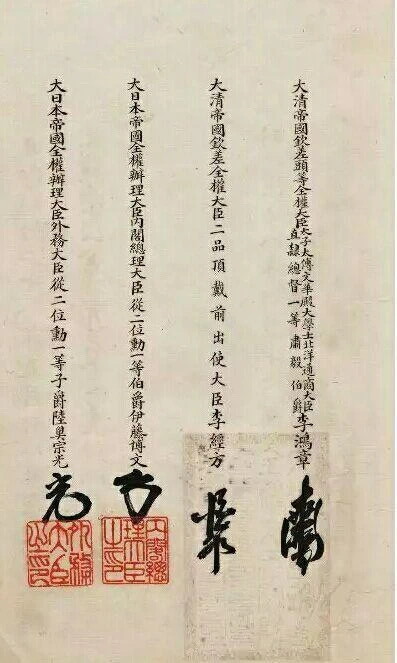 大清帝國欽差頭等全權大臣太子太傅文華殿大學士北洋通商大臣
直隸總督一等肅毅伯爵李鴻章
大清帝國欽差全權大臣二品頂戴前出使大臣李經方
大日本帝國全權辦理大臣內閣總理大臣從二位勳一等伯爵伊藤博文
內閣總
理大臣
之印
大日本帝國全權辦理大臣外務大臣從二位勳一等子爵陸奧宗光
外務
大臣
之印